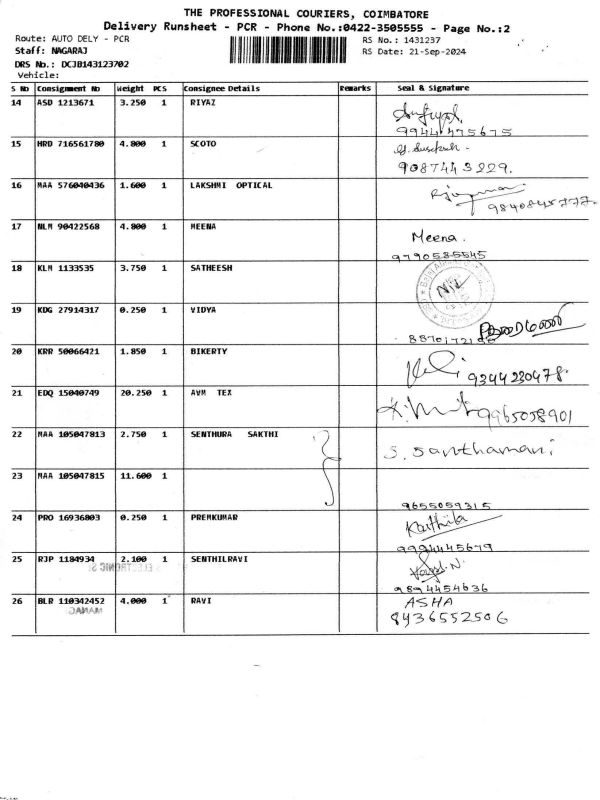 THE PROFESSIONAL COURIERS, COIMBATORE
Delivery Runsheet - PCR - Phone No.:0422-3505555 - Page No.:2
Route: AUTO DELY - PCR
RS No.: 1431237
Staff: NAGARAJ
RS Date: 21-Sep-2024
DRS No.: DCJB143123702
Vehicle:
S No Consignment No Weight PCS Consignee Details Remarks Seal & Signature
14 ASD 1213671 3.250 1 RIYAZ
99444 475675
15 HRD 716561780 4.800 1 SCOTO
9087443229.
16 MAA 576040436 1.600 1 LAKSHMI OPTICAL
9840845777.
17 NLM 90422568 4.800 1 MEENA Meena.
9790585545
18 KLM 1133535 3.750 1 SATHEESH
19 KDG 27914317 0.250 1 VIDYA
20 KRR 50066421 1.850 1 BIKERTY
9344230478.
21 EDQ 15040749 20.250 1 AVM TEX
9965058901
22 MAA 105047813 2.750 1 SENTHURA SAKTHI S. Santhamani
23 MAA 105047815 11.600 1
9655059315
24 PRO 16936803 0.250 1 PREMKUMAR Karthika
9994445679
25 RJP 1184934 2.100 1 SENTHILRAVI
9894454636
26 BLR 110342452 4.000 1 RAVI ASHA
8436552506